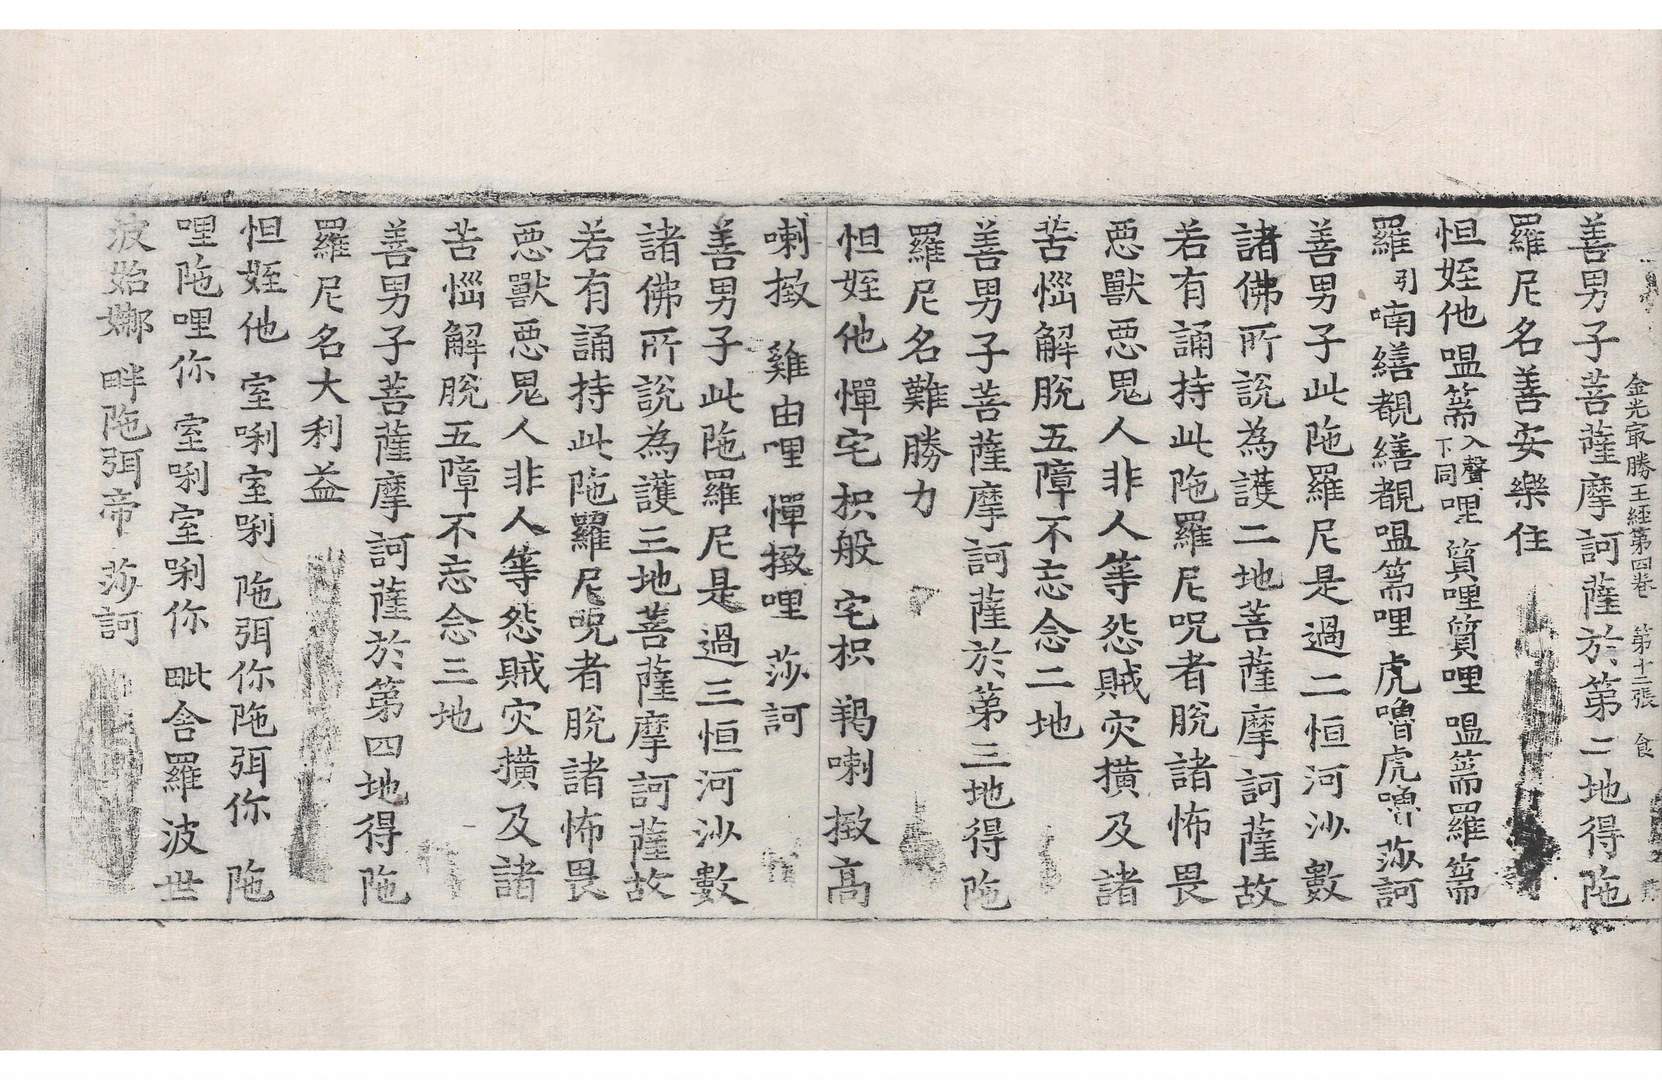 金光㝡勝王経第四巻　第十二張　食
善男子菩薩摩訶薩於第二地得陁
羅尼名善安樂住
怛姪他 嗢篅入聲下同哩 質哩質哩 嗢篅羅篅
羅引喃繕覩繕覩嗢篅哩 虎嚕虎嚕 莎訶
善男子此陁羅尼是過二恒河沙數
諸佛所說為護二地菩薩摩訶薩故
若有誦持此陁羅尼呪者脫諸怖畏
惡獸惡鬼人非人等怨賊灾橫及諸
苦惱解脫五障不忘念二地
善男子菩薩摩訶薩於第三地得陁
羅尼名難勝力
怛姪他 憚宅枳般宅枳 羯喇撠高
喇撠 雞由哩 憚撠哩 莎訶
善男子此陁羅尼是過三恒河沙數
諸佛所說為護三地菩薩摩訶薩故
若有誦持此陁羅尼呪者脫諸怖畏
惡獸惡鬼人非人等怨賊灾橫及諸
苦惱解脫五障不忘念三地
善男子菩薩摩訶薩於第四地得陁
羅尼名大利益
怛姪他 室唎室唎 陁弭你陁弭你 陁
哩陁哩你 室唎室唎你 毗舍羅波世
波始娜 畔陁弭帝 莎訶